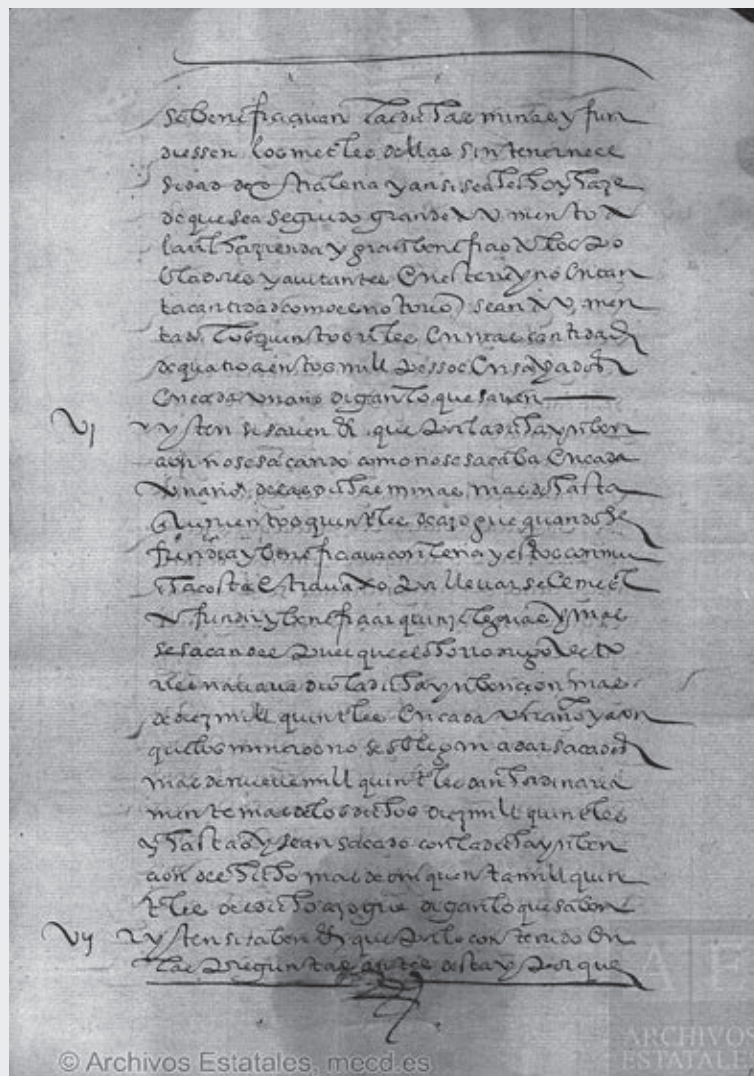 se beneficiauan las dichas minas y fun
diessen los metles dellas sin tener nece
sidad de otra lena y ansi sea hecho y haze
de que sea seguido grande aumento a
la rl hazienda y gran beneficio a los po
bladores y auitantes en este reyno en tan
ta cantidad como es notorio sean aumen
tado los quintos rles en mas cantidad
de quatrocientos mill pessos ensayados
en cada vn año digan lo que sauen
Vj yten si sauen que por la dicha ynben
cion no se sacando como no se sacaba en cada
vn año de las dichas minas mas de hasta
quinientos quintles de azogue quando se
fundia y beneficiaua con lena y esto con mu
cha costa e trauaxo por lleuarse le metl
a fundir y beneficiar quinze leguas y mas
se sacan despues que el dicho rodrigo de to
rres nauarra dio la dicha ynbencion mas
de diez mill quintles en cada vn año y aun
que los mineros no se obligan a dar sacados
mas de nueue mill quintles dan hordinaria
mente mas de los dichos diez mill quintles
y hasta oy sean sacado con la dicha ynben
cion de el dicho mas de cinquenta mill quin
tles de el dicho azogue digan lo que saben
Vij yten si saben que por lo contenido en
las preguntas antes desta y porque
© Archivos Estatales, mecd.es
A E
ARCHIVOS
ESTATALES